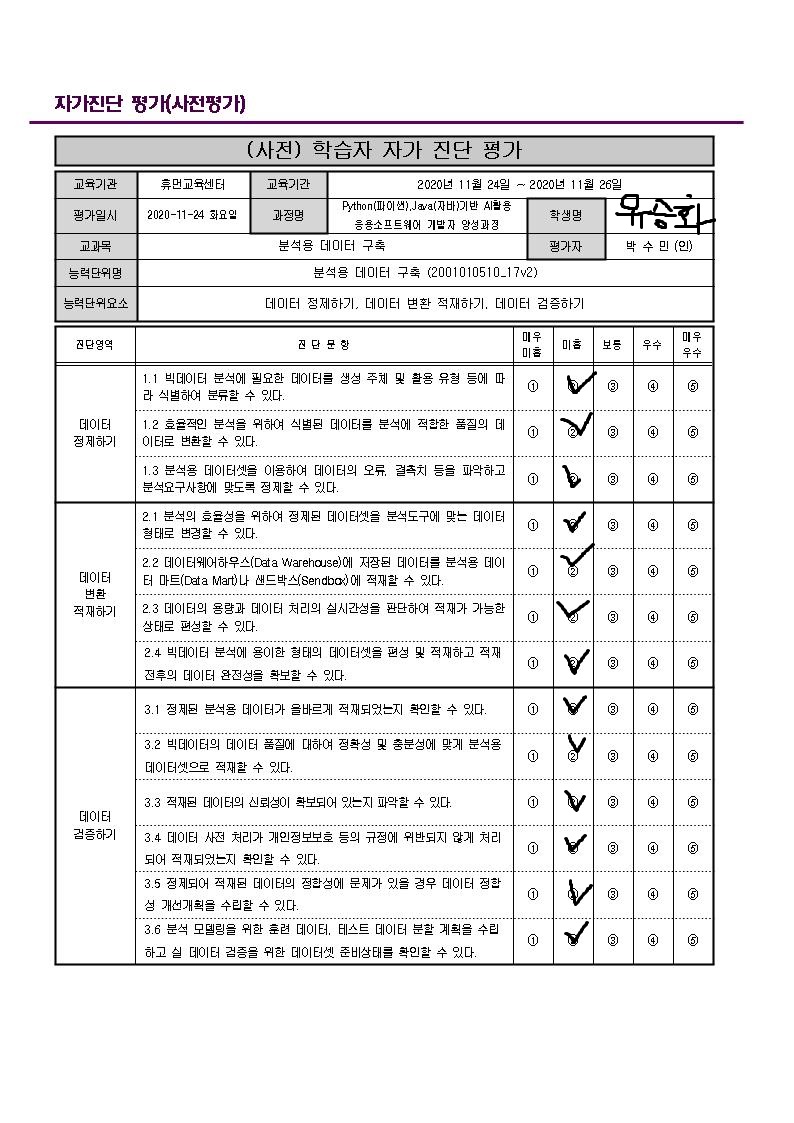 자가진단 평가(사전평가)
(사전) 학습자 자가 진단 평가
교육기관 휴먼교육센터 교육기간 2020년 11월 24일 ~ 2020년 11월 26일
평가일시 2020-11-24 화요일 과정명 Python(파이썬),Java(자바)기반 AI활용
응용소프트웨어 개발자 양성과정 학생명 유승희
교과목 분석용 데이터 구축 평가자 박 수 민 (인)
능력단위명 분석용 데이터 구축 (2001010510_17v2)
능력단위요소 데이터 정제하기, 데이터 변환 적재하기, 데이터 검증하기
진단영역 진 단 문 항 매우 미흡 미흡 보통 우수 매우 우수
데이터
정제하기
1.1 빅데이터 분석에 필요한 데이터를 생성 주체 및 활용 유형 등에 따
라 식별하여 분류할 수 있다. ① ② ③ ④ ⑤
1.2 효율적인 분석을 위하여 식별된 데이터를 분석에 적합한 품질의 데
이터로 변환할 수 있다. ① ② ③ ④ ⑤
1.3 분석용 데이터셋을 이용하여 데이터의 오류, 결측치 등을 파악하고
분석요구사항에 맞도록 정제할 수 있다. ① ② ③ ④ ⑤
데이터
변환
적재하기
2.1 분석의 효율성을 위하여 정제된 데이터셋을 분석도구에 맞는 데이터
형태로 변경할 수 있다. ① ② ③ ④ ⑤
2.2 데이터웨어하우스(Data Warehouse)에 저장된 데이터를 분석용 데이
터 마트(Data Mart)나 샌드박스(Sendbox)에 적재할 수 있다. ① ② ③ ④ ⑤
2.3 데이터의 용량과 데이터 처리의 실시간성을 판단하여 적재가 가능한
상태로 편성할 수 있다. ① ② ③ ④ ⑤
2.4 빅데이터 분석에 용이한 형태의 데이터셋을 편성 및 적재하고 적재
전후의 데이터 완전성을 확보할 수 있다. ① ② ③ ④ ⑤
데이터
검증하기
3.1 정제된 분석용 데이터가 올바르게 적재되었는지 확인할 수 있다. ① ② ③ ④ ⑤
3.2 빅데이터의 데이터 품질에 대하여 정확성 및 충분성에 맞게 분석용
데이터셋으로 적재할 수 있다. ① ② ③ ④ ⑤
3.3 적재된 데이터의 신뢰성이 확보되어 있는지 파악할 수 있다. ① ② ③ ④ ⑤
3.4 데이터 사전 처리가 개인정보보호 등의 규정에 위반되지 않게 처리
되어 적재되었는지 확인할 수 있다. ① ② ③ ④ ⑤
3.5 정제되어 적재된 데이터의 정합성에 문제가 있을 경우 데이터 정합
성 개선계획을 수립할 수 있다. ① ② ③ ④ ⑤
3.6 분석 모델링을 위한 훈련 데이터, 테스트 데이터 분할 계획을 수립
하고 실 데이터 검증을 위한 데이터셋 준비상태를 확인할 수 있다. ① ② ③ ④ ⑤